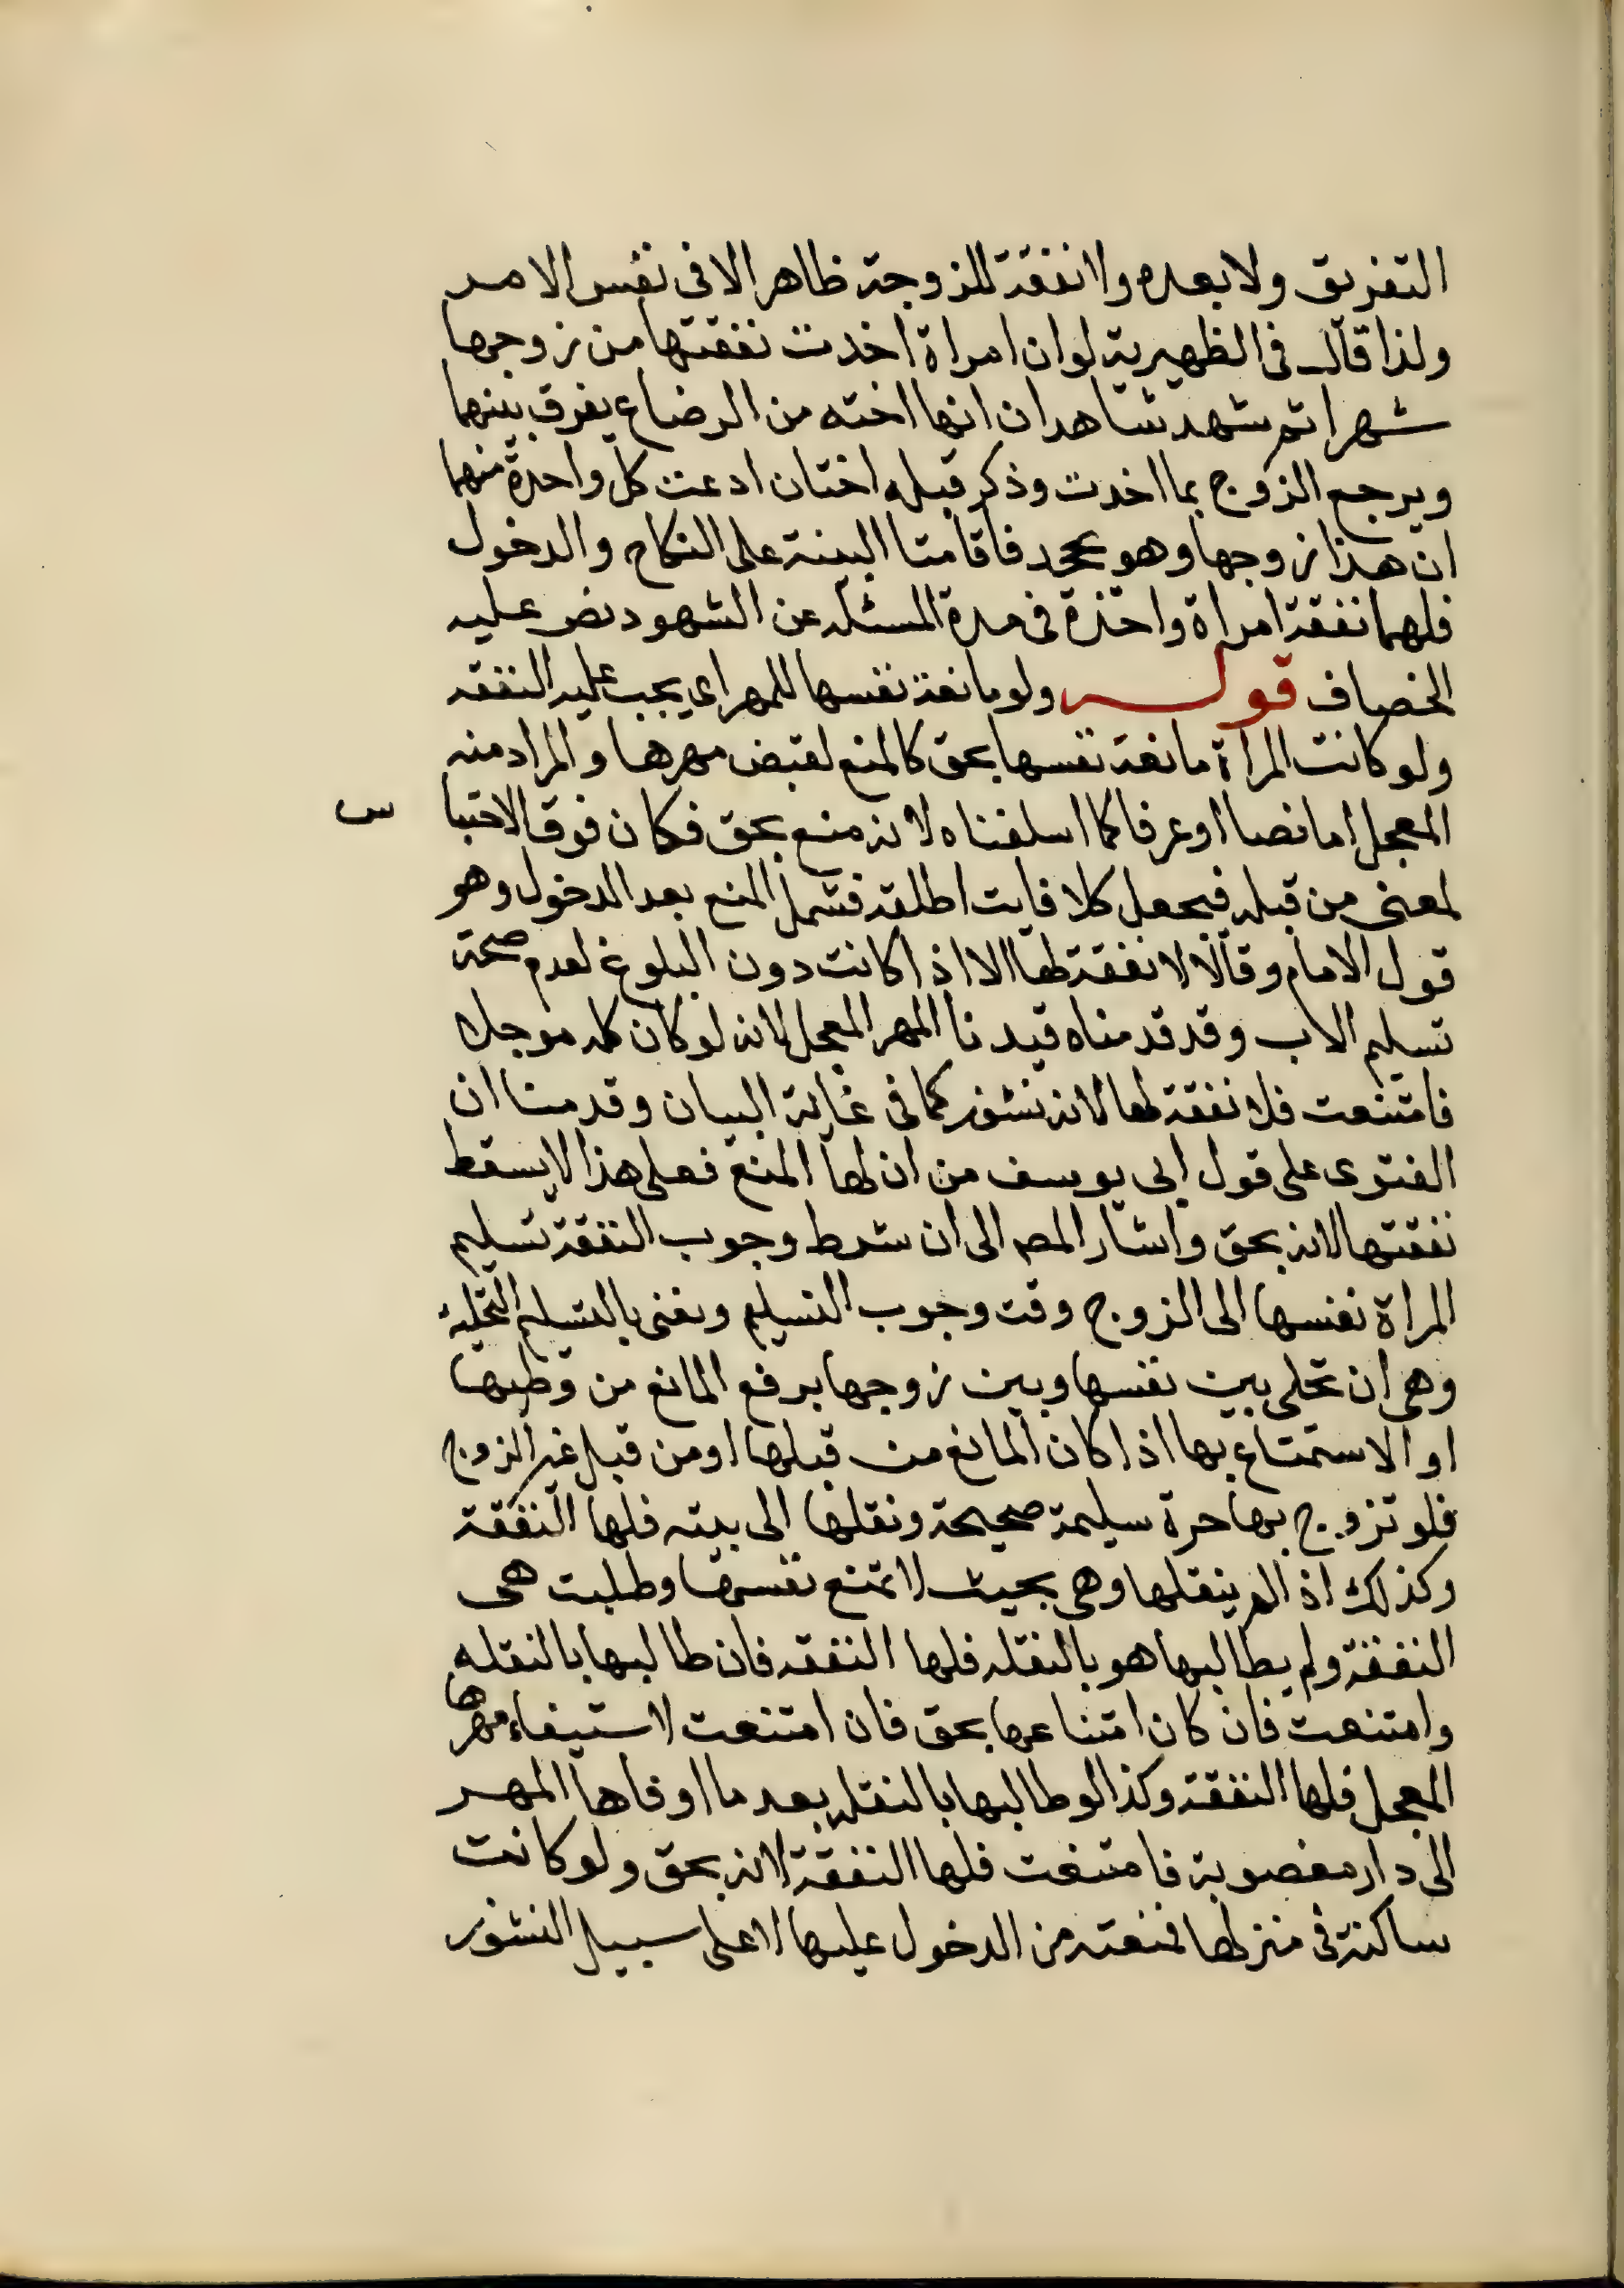 التفريق ولا بعده ولا نفقة للزوجة ظاهرا لا في نفس الامر
ولذا قال في الظهيرية لو ان امراة اخذت نفقتها من زوجها
شهرا ثم شهد شاهدان انها اخته من الرضاع يفرق بينهما
ويرجع الزوج بما اخدت وذكر قبله اختان ادعت كل واحدة منهما
ان هذا زوجها وهو يجحد فاقامتا البينة على النكاح والدخول
فلهما نفقة امراة واحدة في مدة المسئلة عن الشهود نص عليه
الخصاف قوله ولو مانعة نفسها للمهر اى يجب عليه النفقه
ولو كانت المراة مانعة نفسها بحق كالمنع لقبض مهرها والمراد منه
المعجل اما نصا او عرفا كما اسلفناه لانه منع بحق فكان فوق الاحتبا س
لمعنى من قبله فيجعل كلا فايت اطلقه فشمل المنع بعد الدخول وهو
قول الامام وقالا لا نفقة لها الا اذا كانت دون البلوغ لعدم صحة
تسليم الاب وقد قدمناه قيدنا المهر المعجل لانه لو كان كله موجلا
فامتنعت فلا نفقة لها لانه نشوز كما في غاية البيان وقدمنا ان
الفتوى على قول ابى يوسف من ان لها المنع فعلى هذا لا يسقط
نفقتها لانه بحق واشار المص الى ان شرط وجوب النفقة تسليم
المراة نفسها الى الزوج وقت وجوب التسليم ونعنى بالتسليم التخلية
وهي ان تخلى بين نفسها وبين زوجها برفع المانع من وطيها
او الاستمتاع بها اذا كان المانع من قبلها او من قبل غير الزوج
فلو تزوج بها حرة سليمة صحيحة ونقلها الى بيته فلها النفقة
وكذلك اذا لم ينقلها وهي بحيث لا تمنع نفسها وطلبت هى
النفقة ولم يطالبها هو بالنقله فلها النفقه فان طالبها بالنقله
وامتنعت فان كان امتناعها بحق فان امتنعت لاستيفاء مهرها
المعجل فلها النفقة وكذا لو طالبها بالنقله بعد ما اوفاها المهر
الى دار مغصوبة فامتنعت فلها النفقة لانه بحق ولو كانت
ساكنة في منزلها فمنعته من الدخول عليها لا على سبيل النشوز